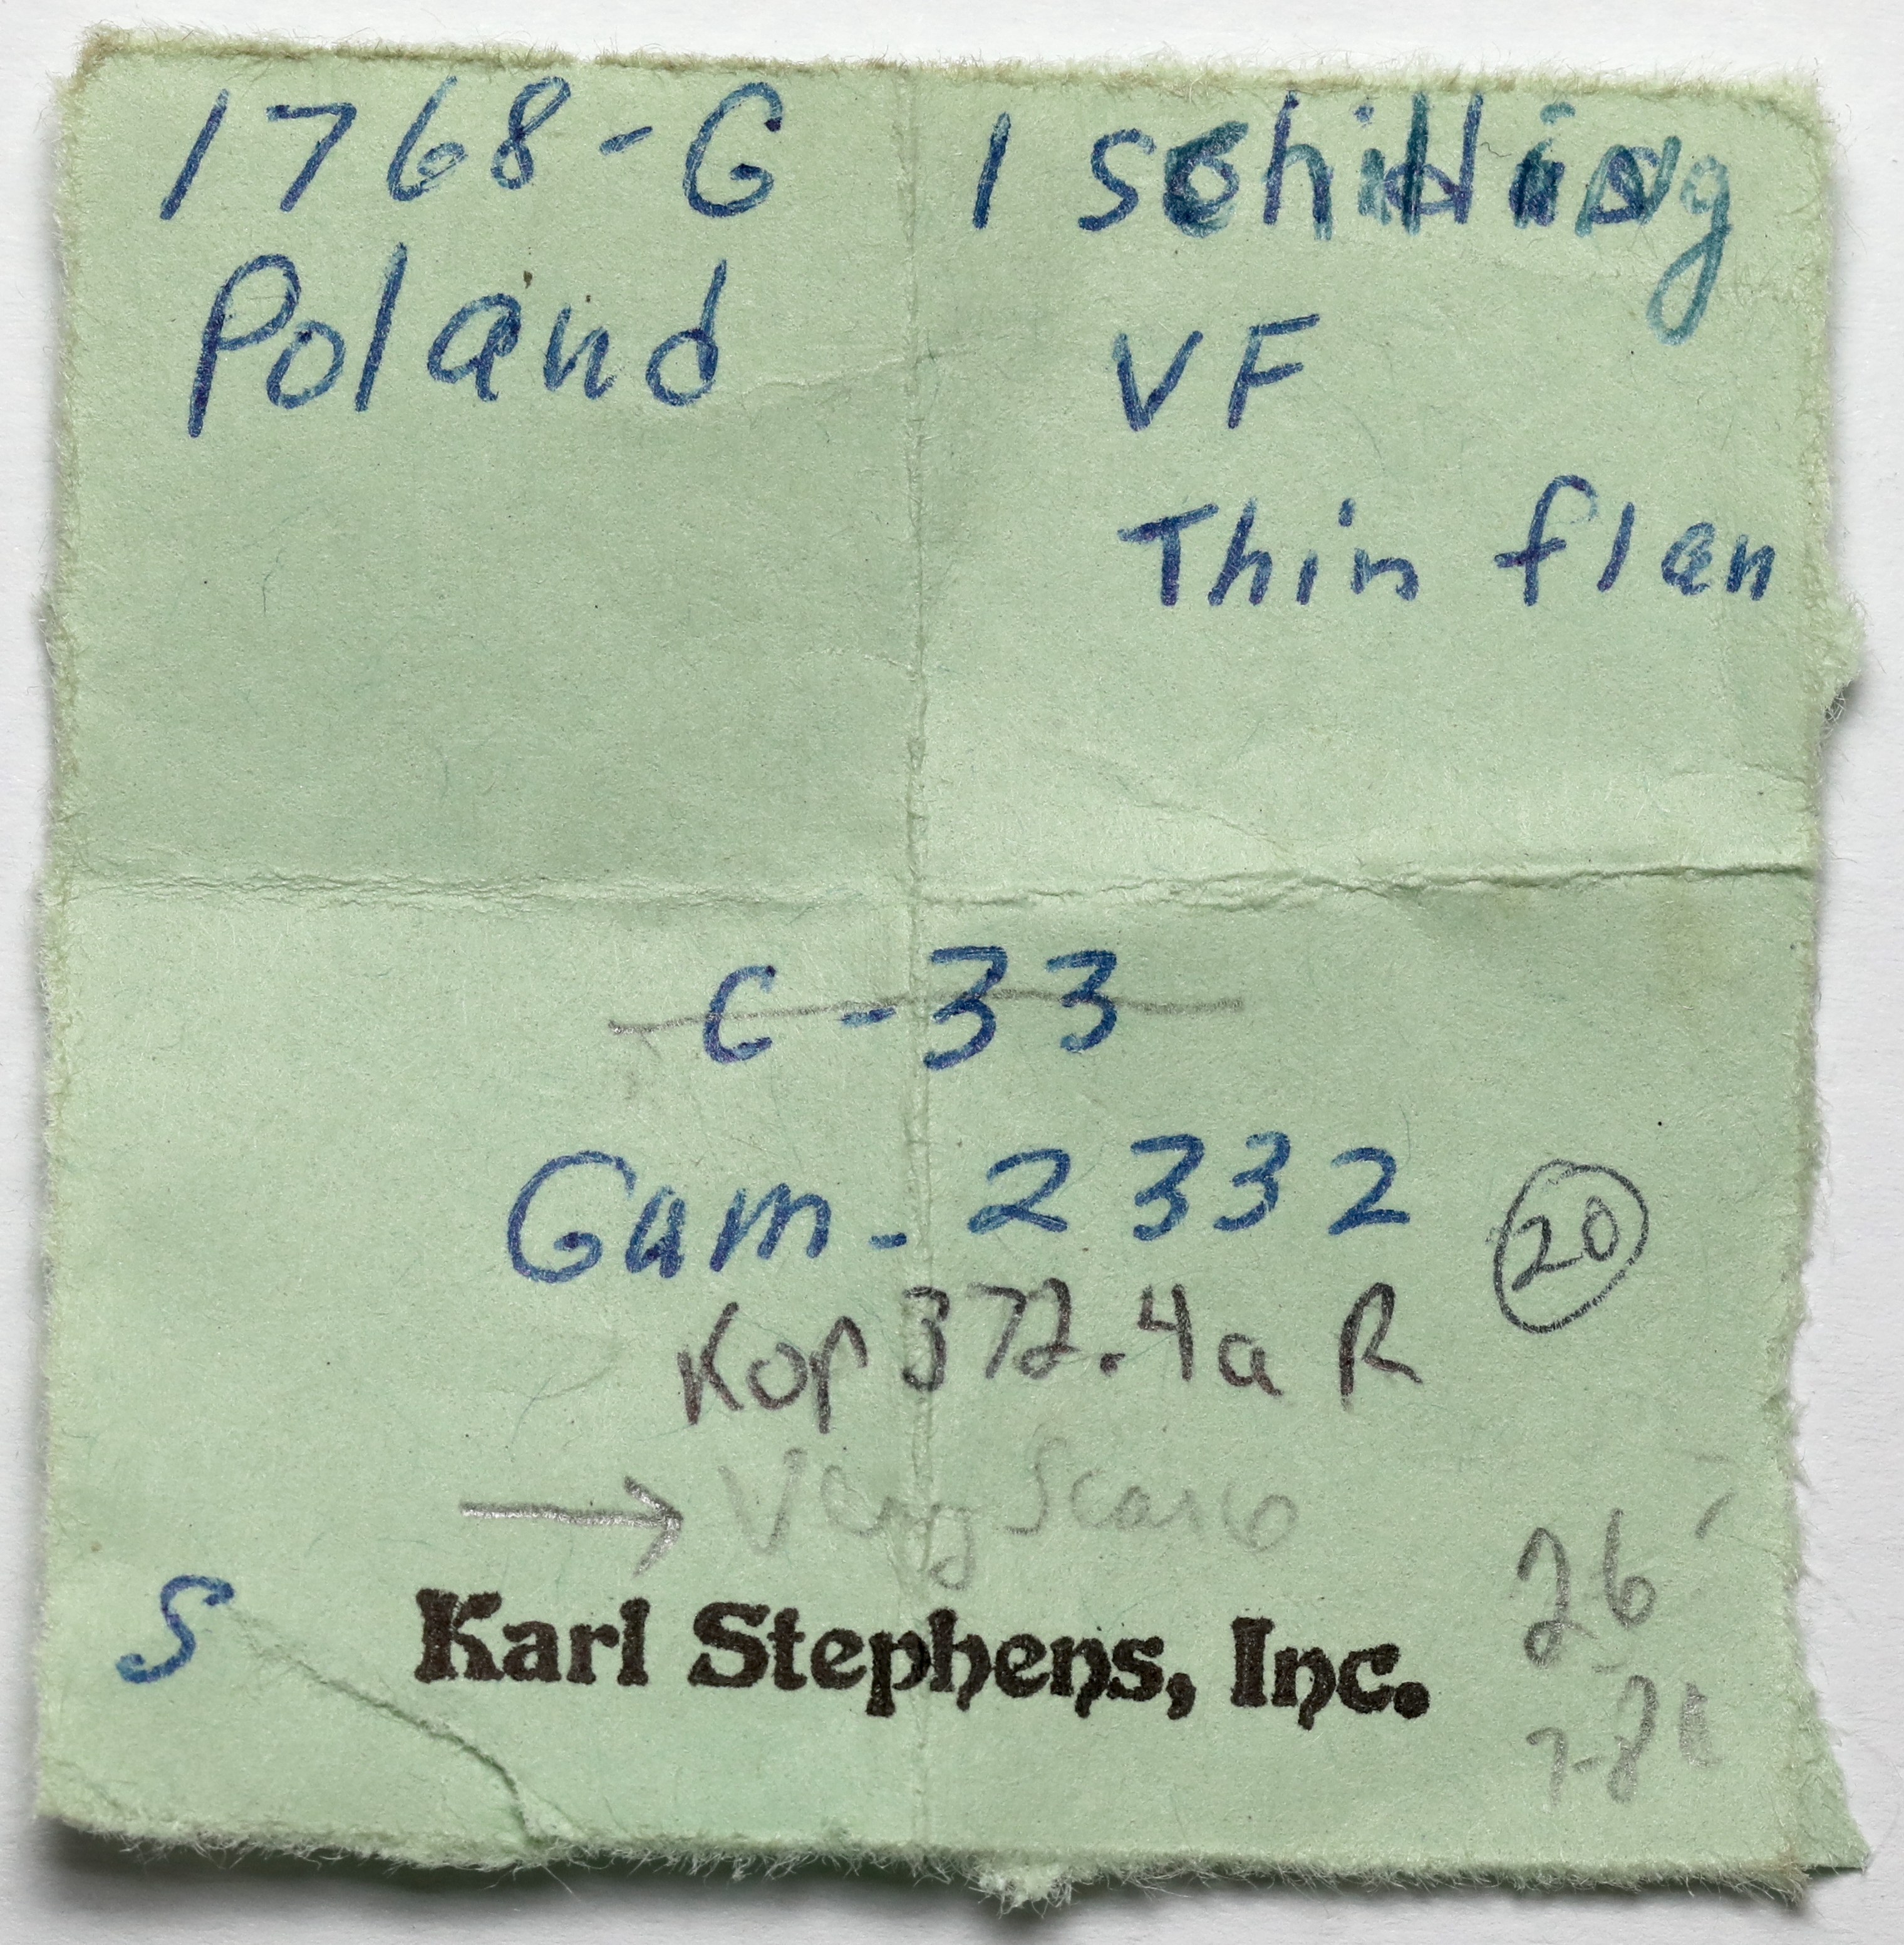 1768-G 1 schilling
Poland VF
Thin flan
C-33
Gum. 2332 20
Kop 372.4a R
→ Very Scarce
26
S Karl Stephens, Inc.